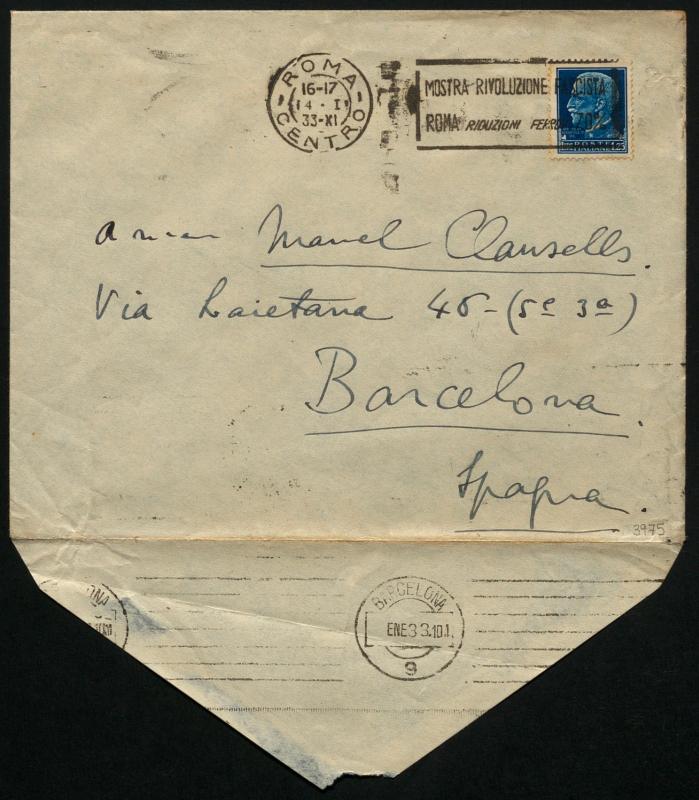 ROMA
16-17
14·I
33-XI
CENTRO
MOSTRA RIVOLUZIONE FASCISTA
ROMA RIDUZIONI 70%
POSTE
ITALIANE 1.25
Manel Clausells.
Via Laietana 46-(5e 3a)
Barcelona.
Spagna.
3975
BARCELONA
ENE 33.10 I.
9